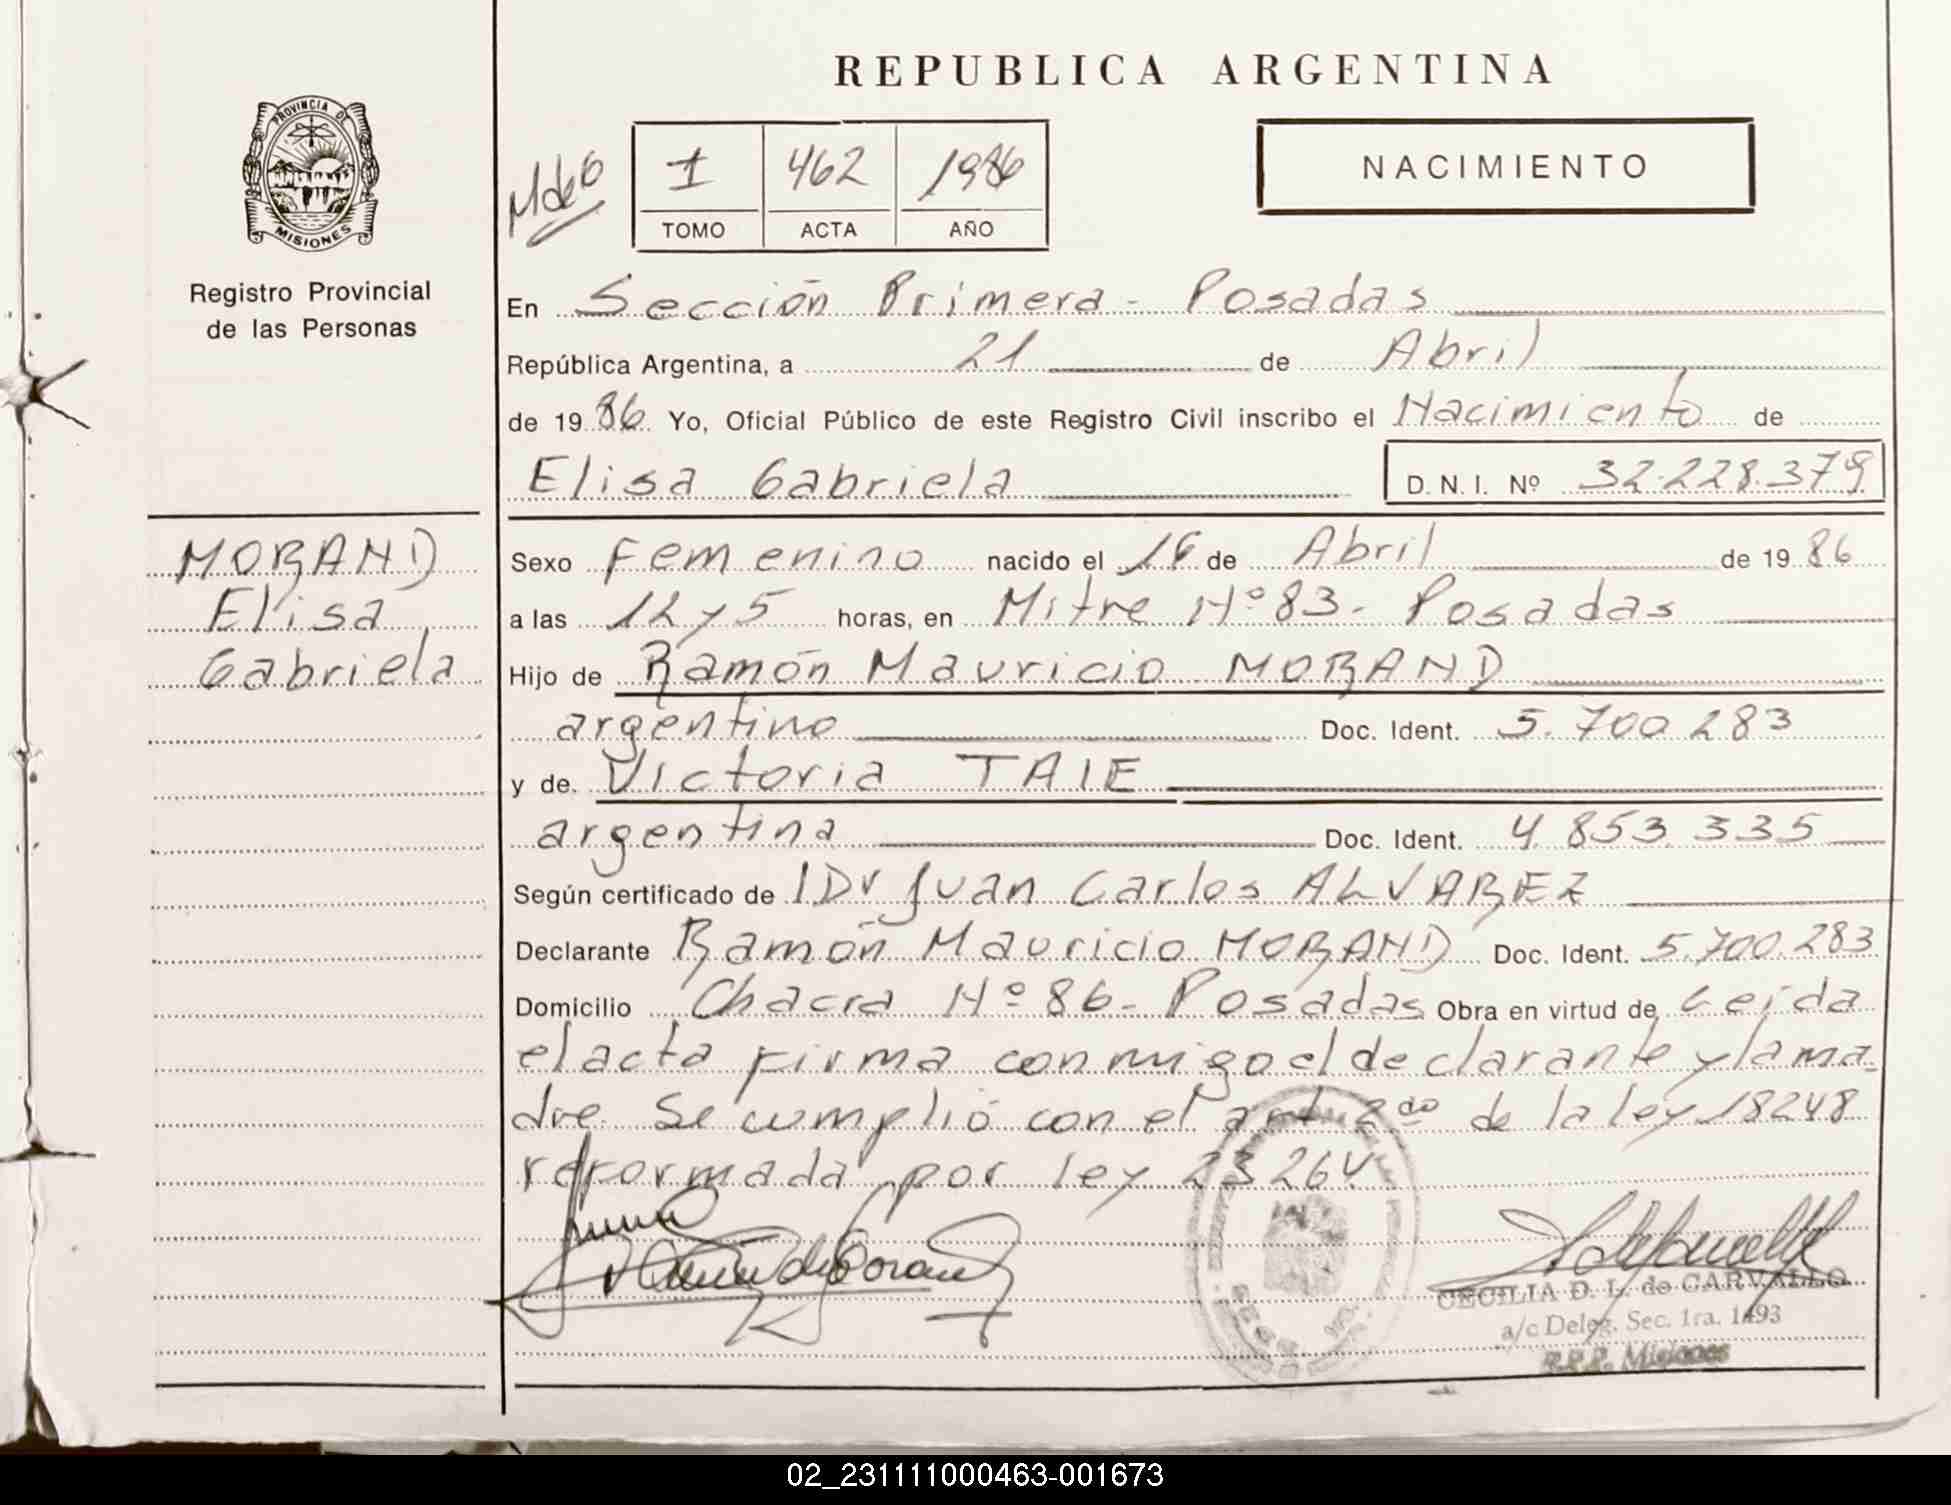 REPUBLICA ARGENTINA
PROVINCIA DE
MISIONES
Registro Provincial
de las Personas
1 462 1986
TOMO ACTA AÑO
NACIMIENTO
En Sección Primera - Posadas
República Argentina, a 21 de Abril
de 1986 Yo, Oficial Público de este Registro Civil inscribo el Nacimiento de
Elisa Gabriela D. N. I. Nº 32.228.379
MORAND
Elisa
Gabriela
Sexo Femenino nacido el 16 de Abril de 1986
a las 12 y 5 horas, en Mitre Nº 83 - Posadas
Hijo de Ramón Mauricio MORAND
argentino Doc. Ident. 5.700.283
y de Victoria TAIE
argentina Doc. Ident. 4.853.335
Según certificado de Dr Juan Carlos ALVAREZ
Declarante Ramón Mauricio MORAND Doc. Ident. 5.700.283
Domicilio Chacra Nº 86 - Posadas Obra en virtud de Leída
el acta firma conmigo el declarante y la ma-
dre. Se cumplió con el art 2do de la ley 18248
reformada por ley 23264
CECILIA D. L. de CARVALLO
a/c Deleg. Sec. 1ra. 1493
R.P.P. Misiones
02_231111000463-001673